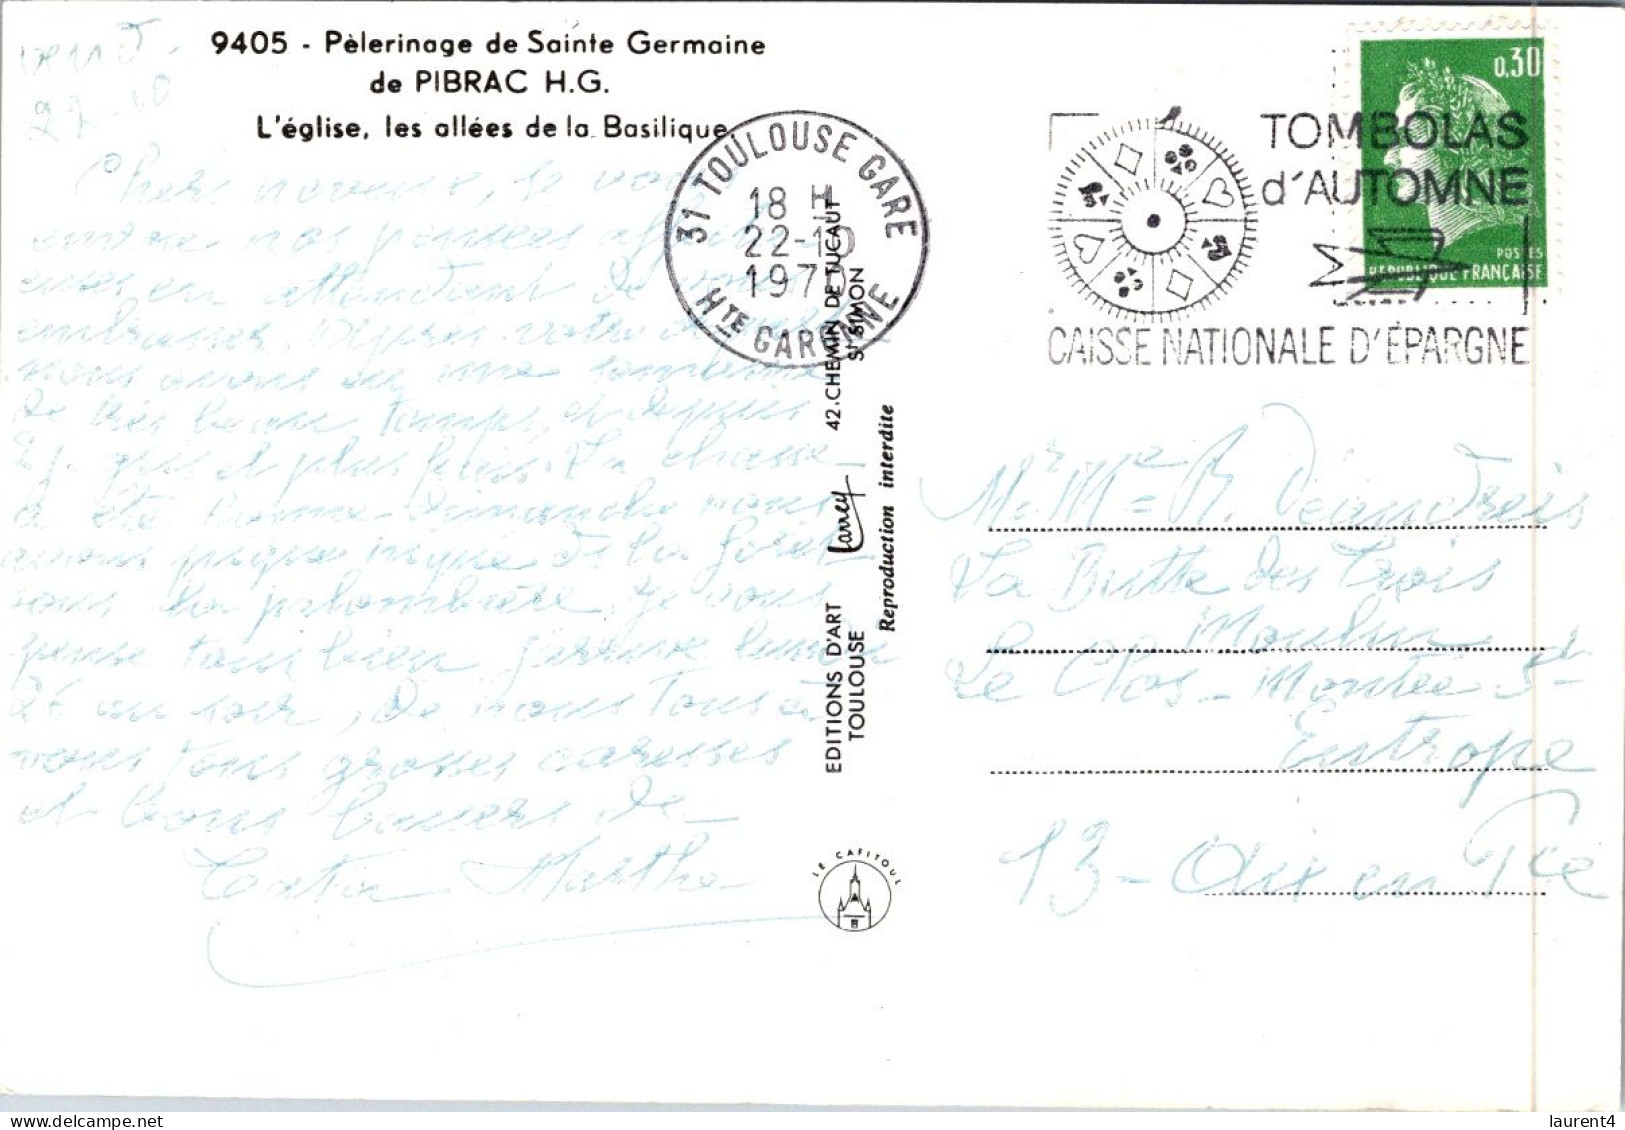 9405 - Pèlerinage de Sainte Germaine
de PIBRAC H.G.
L'église, les allées de la Basilique
31 TOULOUSE GARE
18 H
22-10
1970
HTE GARONNE
TOMBOLAS
d'AUTOMNE
CAISSE NATIONALE D'ÉPARGNE
0,30
POSTES
REPUBLIQUE FRANÇAISE
je vous
envoie nos pensées
en attendant de vous
embrasser. votre
nous avons eu une
de très beau temps, et depuis
gris et plus frais. La chasse
a été bonne. Dimanche nous
avons pique niqué de la forêt
sous la palombière. Je vous
pense tous bien, j'arrive lundi
26 au soir, de nous tous à
vous tous grosses caresses
et bons baisers de
Marthe
EDITIONS D'ART Larrey 42. CHEMIN DE TUCAUT
TOULOUSE ST SIMON
Reproduction interdite
LE CAPITOUL
Mr Me R.
La Butte des Trois
Moulins
Le Clos - Montée St
Eutrope
13 - Aix en Pce
laurent4